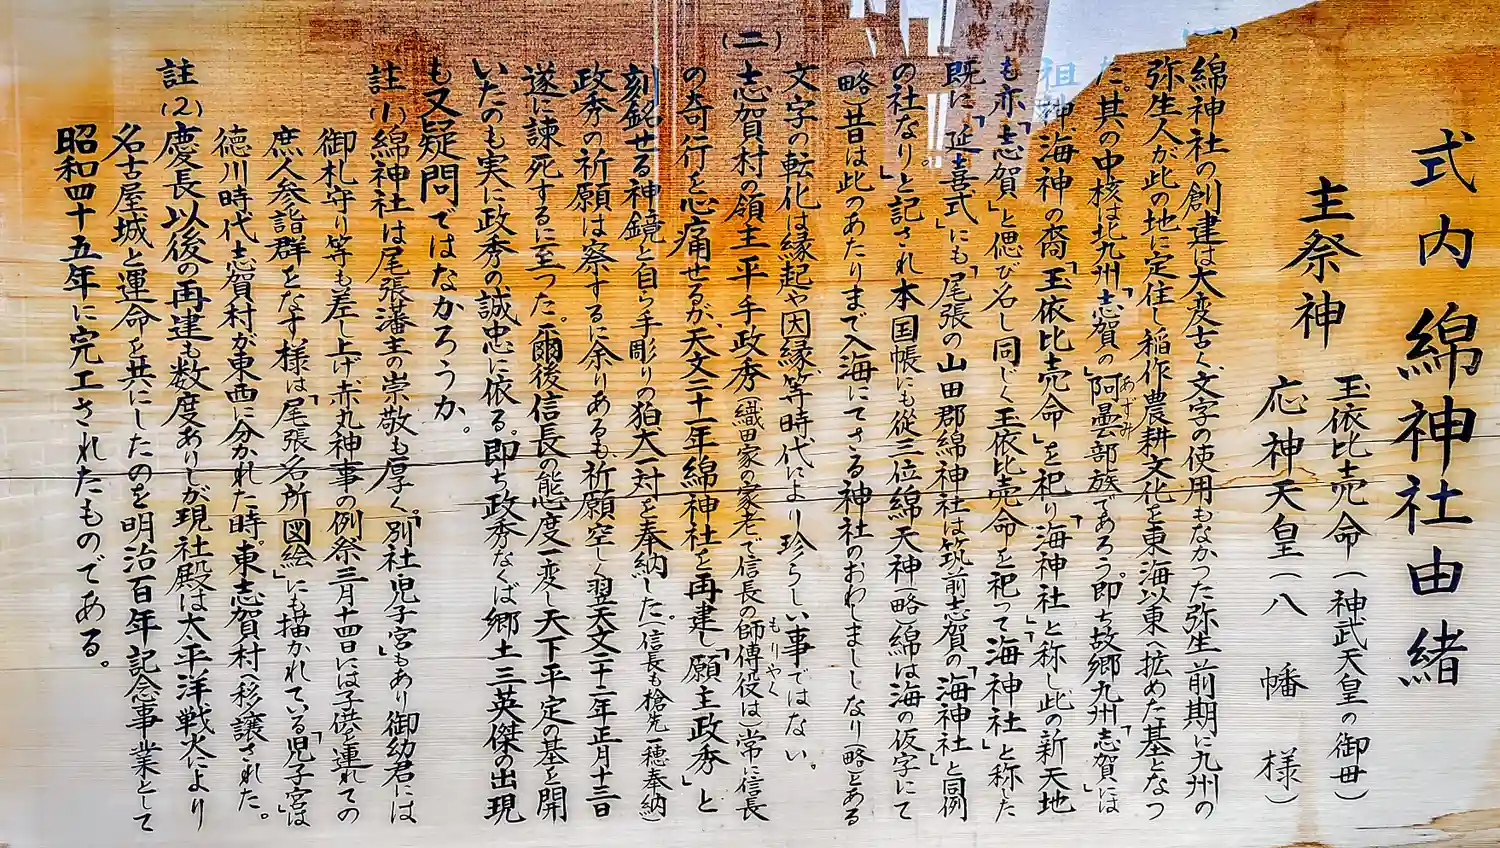 式内 綿神社由緒
主祭神 玉依比売命(神武天皇の御母)
応神天皇(八幡様)
綿神社の創建は大変古く文字の使用もなかった弥生前期に九州の
弥生人が此の地に定住し稲作農耕文化を東海以東へ拡めた基となつ
た。其の中核は北九州「志賀」の「阿曇部族であろう。即ち故郷九州「志賀」には
あずみ
祖神海神の裔「玉依比売命」を祀り「海神社」と称し此の新天地
も亦「志賀」と偲び名し同じく玉依比売命を祀って「海神社」と称した
既に「延喜式」にも「尾張の山田郡綿神社は筑前志賀の「海神社」と同例
の社なり。」と記され本国帳にも従三位綿天神(略)綿は海の仮字にて
(略)昔は此のあたりまで入海にてさる神社のおわしましゝなり(略)とある
文字の転化は縁起や因縁等時代により珍らしい事ではない。
(二)志賀村の領主平手政秀(織田家の家老で信長の師傅役は)常に信長
もりやく
の奇行を心痛せるが、天文二十一年綿神社を再建し「願主政秀」と
刻銘せる神鏡と自ら手彫りの狛犬一対を奉納した。(信長も槍先一穂奉納)
政秀の祈願は察するに余りあるも祈願空しく翌天文二十二年正月十三日
遂に諫死するに至つた。爾後信長の態度一変し天下平定の基を開
いたのも実に政秀の誠忠に依る。即ち政秀なくば郷土三英傑の出現
も又疑問ではなかろうか。
註(1)綿神社は尾張藩主の崇敬も厚く。「別社児子宮」もあり御幼君には
御札守り等も差し上げ赤丸神事の例祭三月十四日には子供を連れての
庶人参詣群をなす様は、「尾張名所図絵」にも描かれている「児子宮」は
徳川時代志賀村が東西に分かれた時。東志賀村へ移譲された。
註(2)慶長以後の再建も数度ありしが現社殿は太平洋戦火により
名古屋城と運命を共にしたのを明治百年記念事業として
昭和四十五年に完工されたものである。